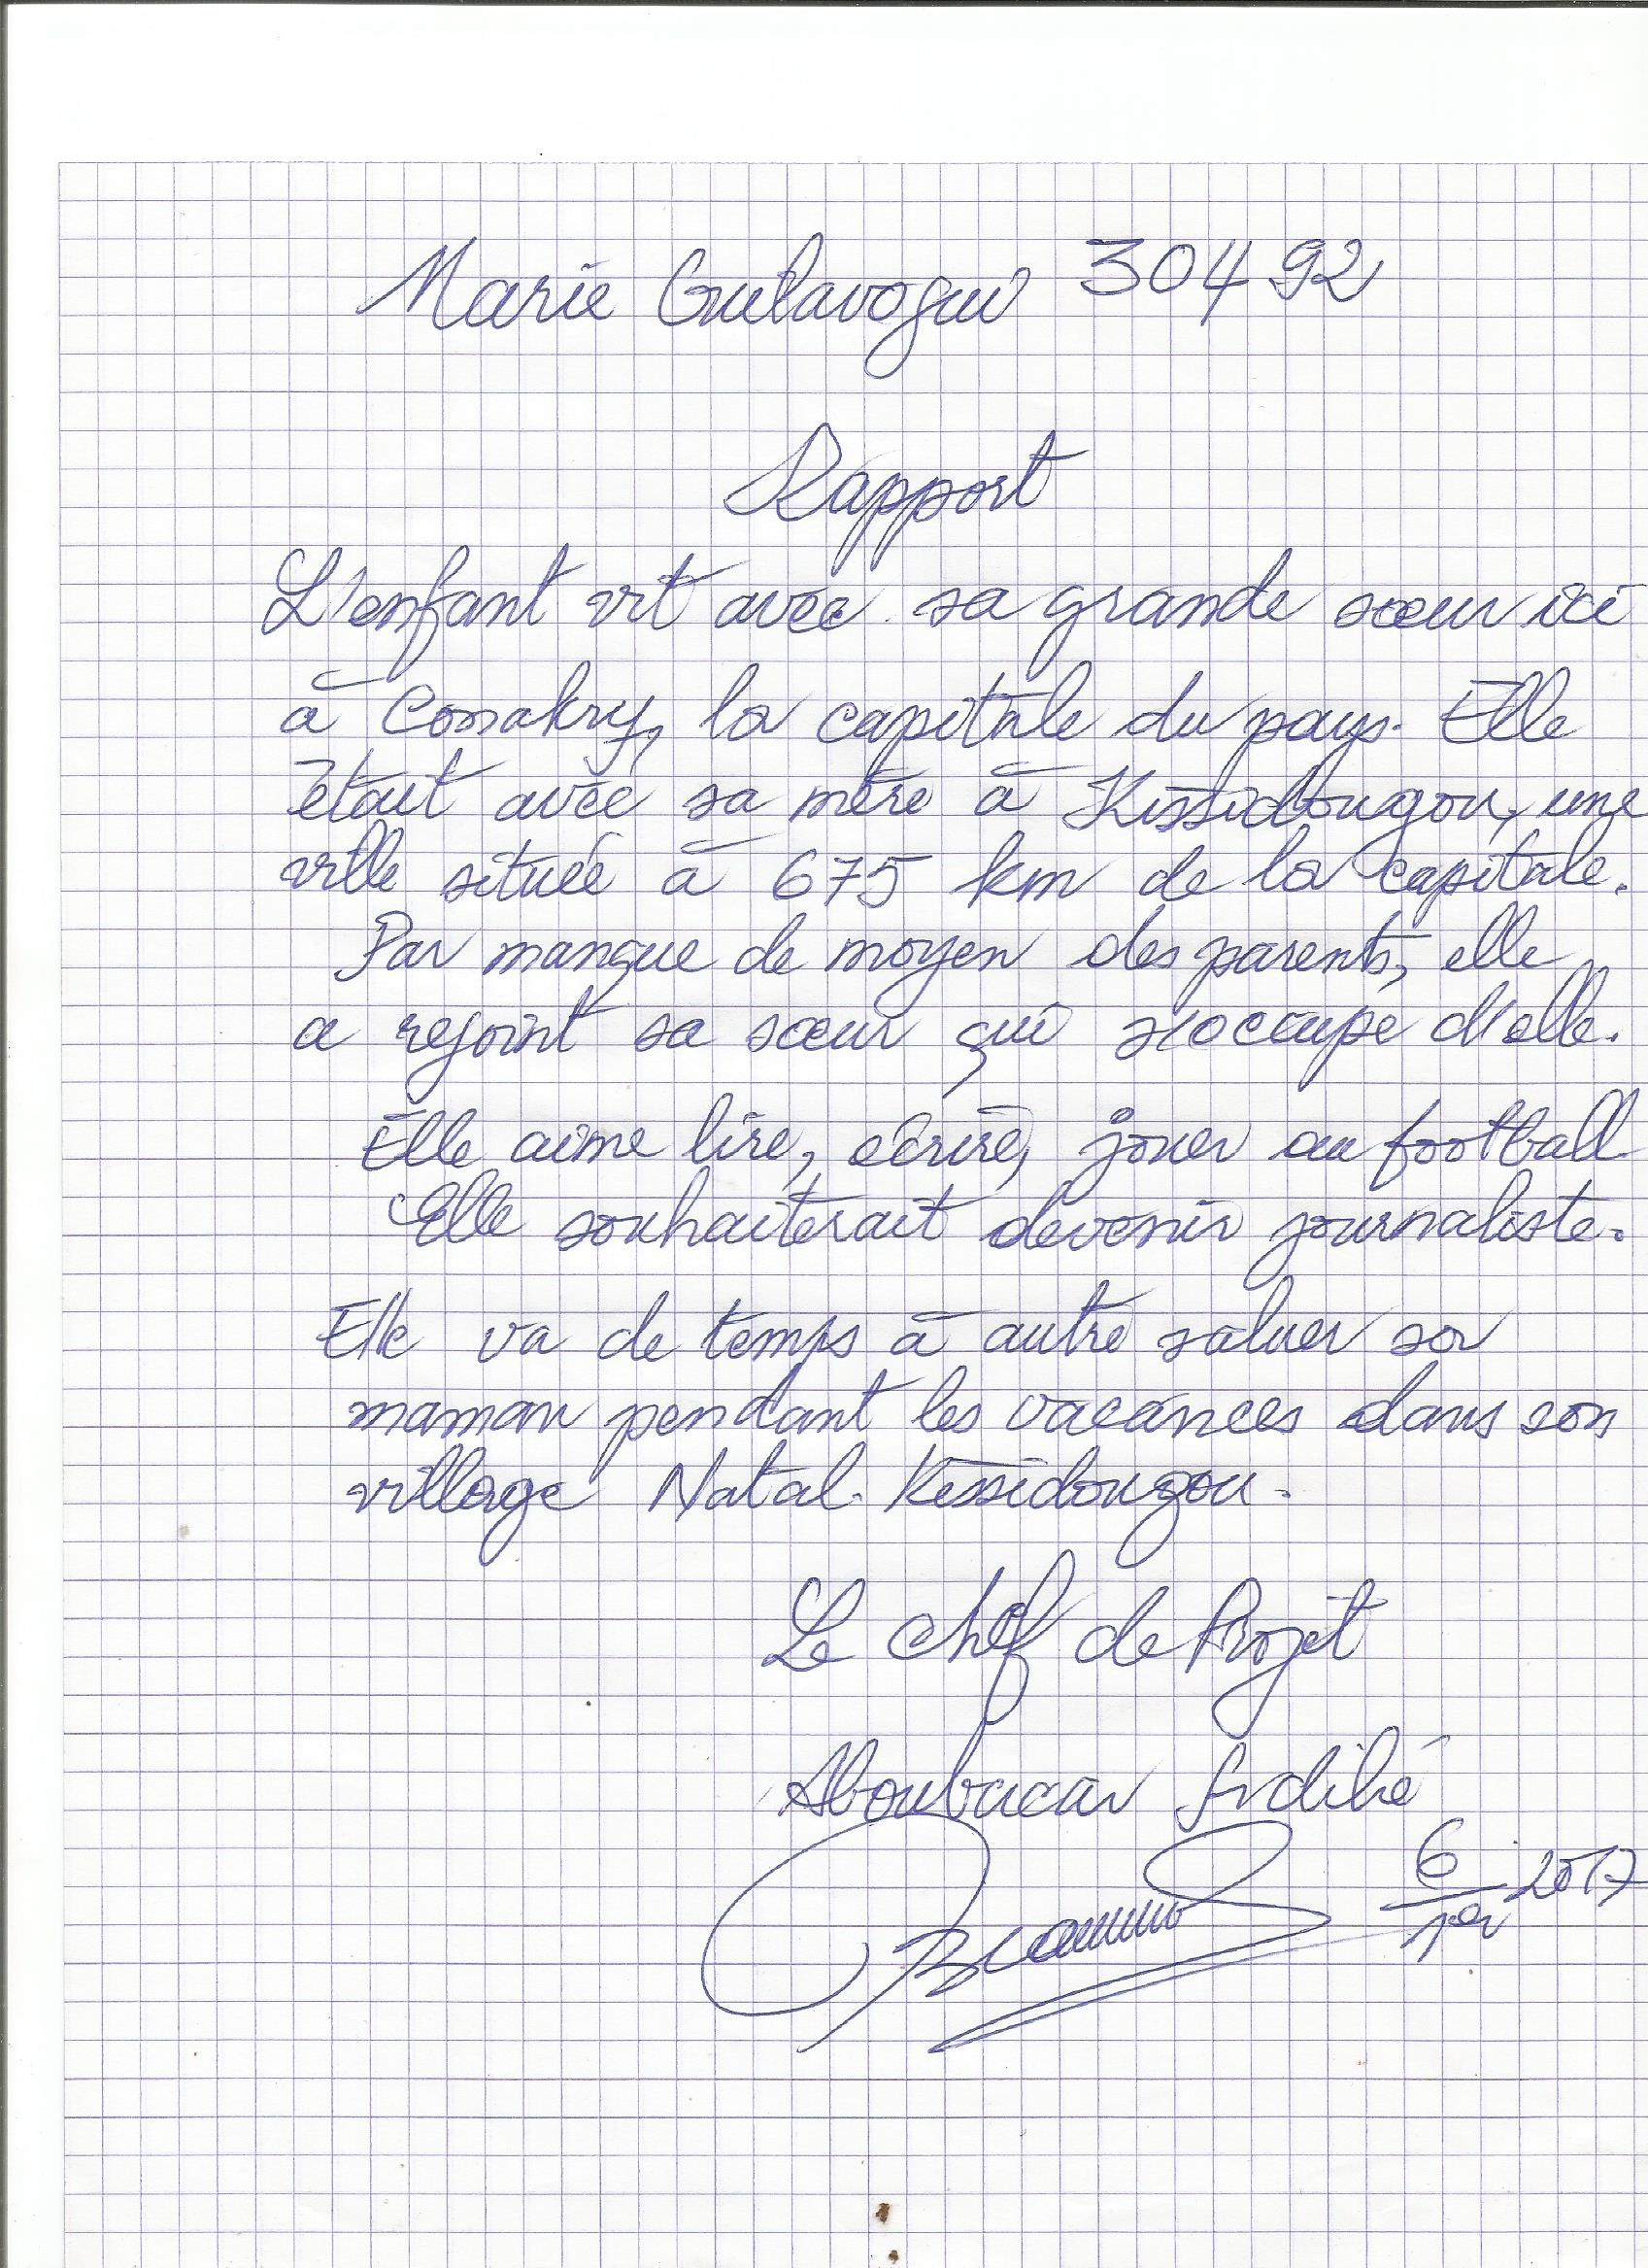 Marie Guilavogui 30492
Rapport
L'enfant vit avec sa grande sœur ici
à Conakry, la capitale du pays. Elle
était avec sa mère à Kissidougou, une
ville située à 675 km de la capitale.
Par manque de moyen des parents, elle
a rejoint sa sœur qui s'occupe d'elle.
Elle aime lire, écrire, jouer au football.
Elle souhaiterait devenir journaliste.
Elle va de temps à autre saluer sa
maman pendant les vacances dans son
village Natal. Kissidougou.
Le chef de Projet
Aboubacar
6
2017